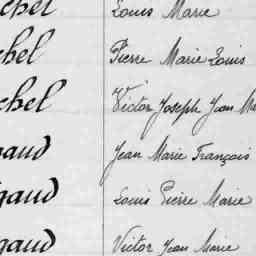 chel Louis Marie
chel Pierre Marie Louis
chel Victor Joseph Jean Ma
gaud Jean Marie François
gaud Louis Pierre Marie
gaud Victor Jean Marie